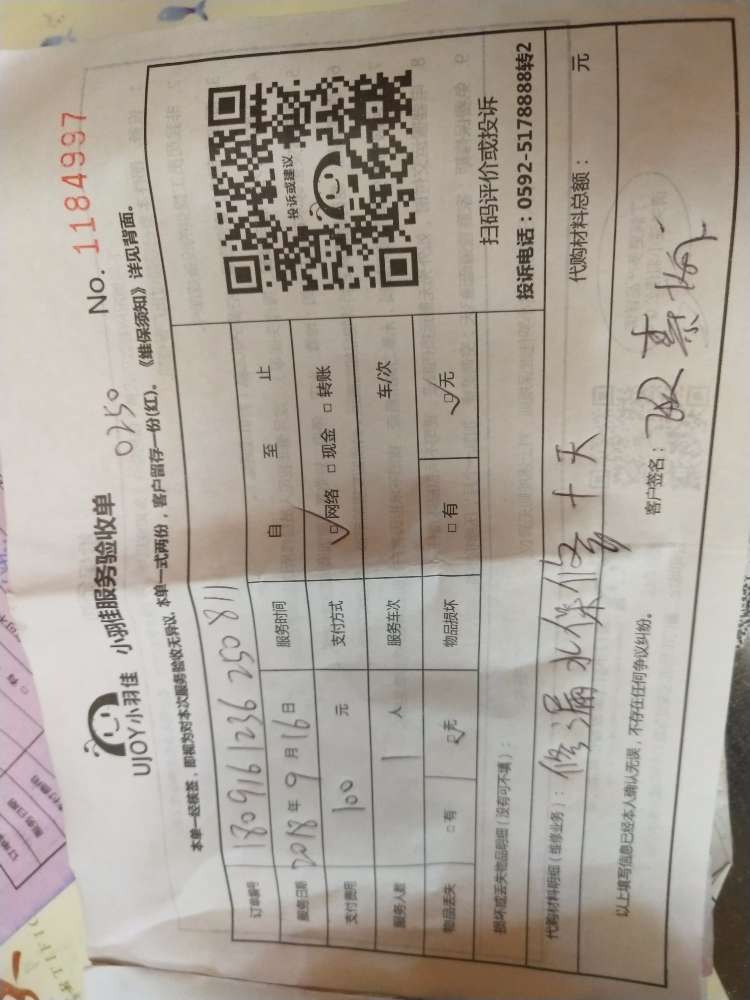 UJOY小羽佳 小羽佳服务验收单 0250 No. 1184997
本单一经核签，即视为对本次服务验收无异议. 本单一式两份，客户留存一份(红)。《维保须知》详见背面。
订单编号 1809161236250811
服务日期 2018年9月16日 服务时间 自 至 止
支付费用 100 元 支付方式 ☑网络 □现金 □转账
服务人数 1 人 服务车次 车/次
物品丢失 □有 ☑无 物品损坏 □有 ☑无
投诉或建议
扫码评价或投诉
投诉电话：0592-5178888转2
损坏或丢失物品明细（没有可不填）：
代购材料明细（维修业务）： 修漏水保修十天 代购材料总额： 元
以上填写信息已经本人确认无误，不存在任何争议纠纷。 客户签名：